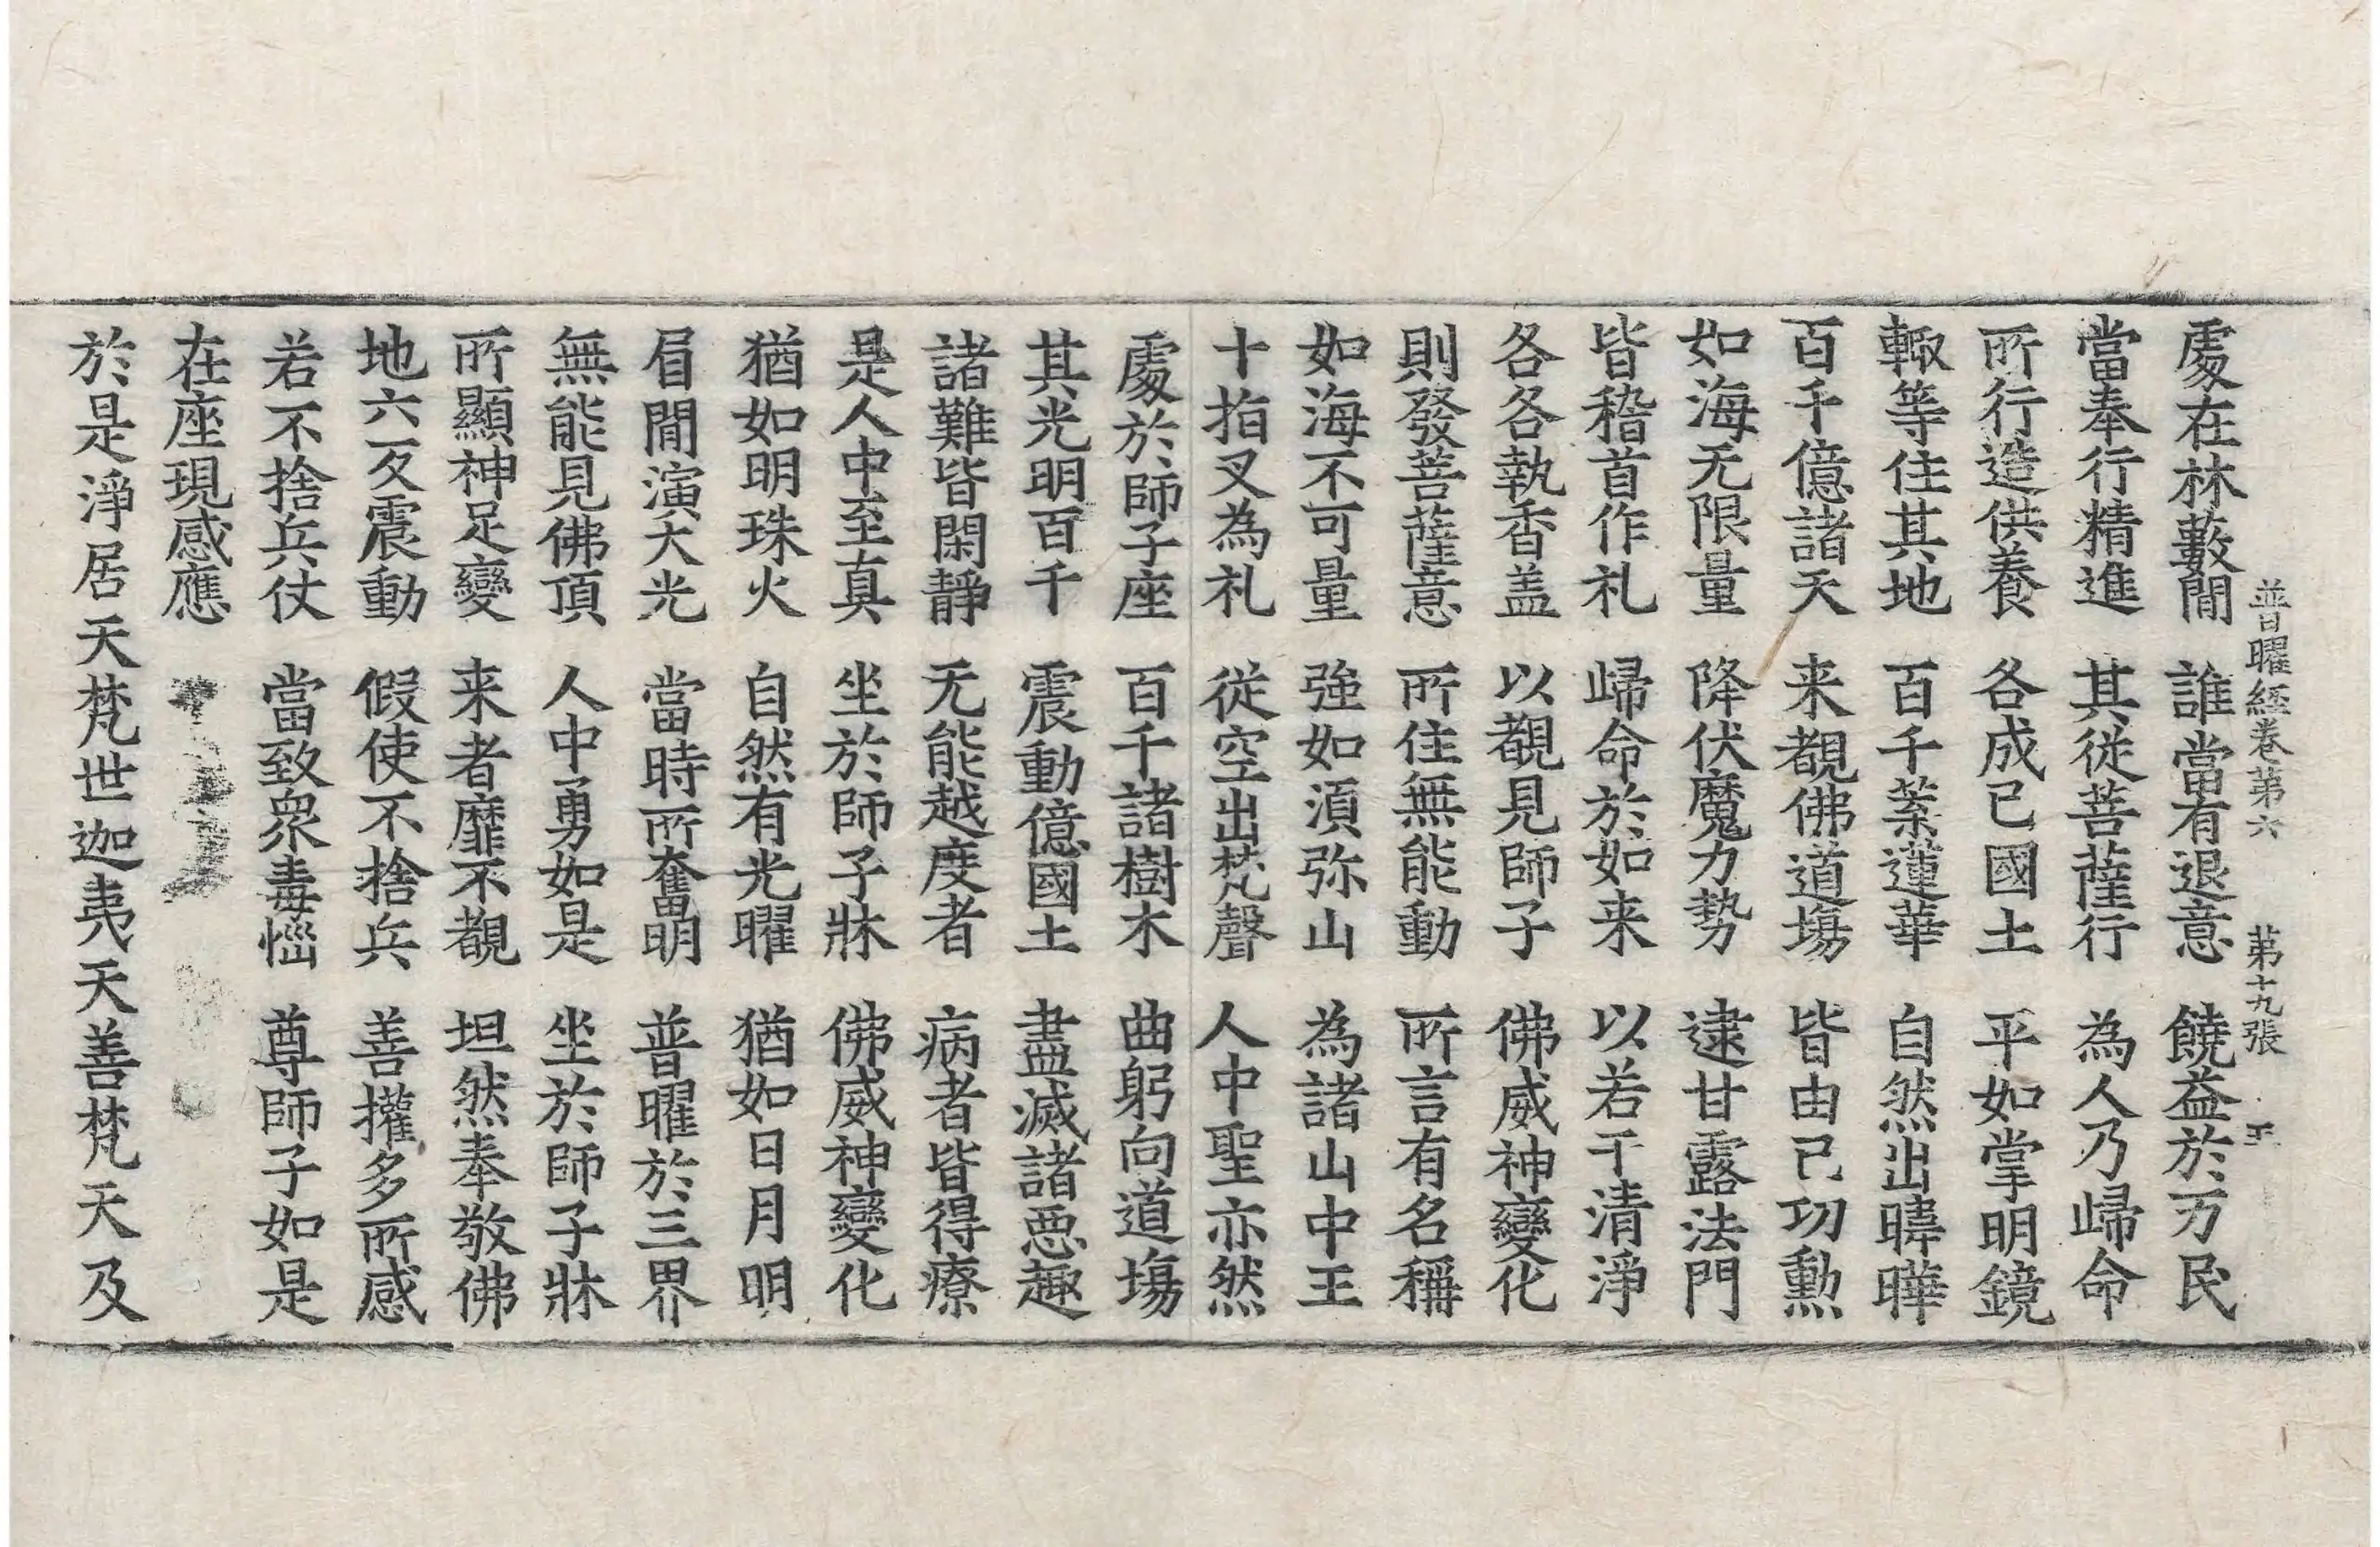 普曜經卷苐六 苐十九張 王
處在林藪閒 誰當有退意 饒益於万民
當奉行精進 其從菩薩行 為人乃歸命
所行造供養 各成已國土 平如掌明鏡
輙等住其地 百千葉蓮華 自然出暐曄
百千億諸天 来覩佛道塲 皆由已功勲
如海无限量 降伏魔力勢 逮甘露法門
皆稽首作礼 歸命於如来 以若干清淨
各各執香盖 以覩見師子 佛威神變化
則發菩薩意 所住無能動 所言有名稱
如海不可量 強如湏弥山 為諸山中王
十指叉為礼 從空出梵聲 人中聖亦然
處於師子座 百千諸樹木 曲躬向道塲
其光明百千 震動億國土 盡滅諸惡趣
諸難皆閑靜 无能越度者 病者皆得療
是人中至真 坐於師子牀 佛威神變化
猶如明珠火 自然有光曜 猶如日月明
眉閒演大光 當時所奮明 普曜於三界
無能見佛頂 人中勇如是 坐於師子牀
所顯神足變 来者靡不覩 坦然奉敬佛
地六反震動 假使不捨兵 善權多所感
若不捨兵仗 當致衆毒惱 尊師子如是
在座現感應
於是淨居天梵世迦夷天善梵天及